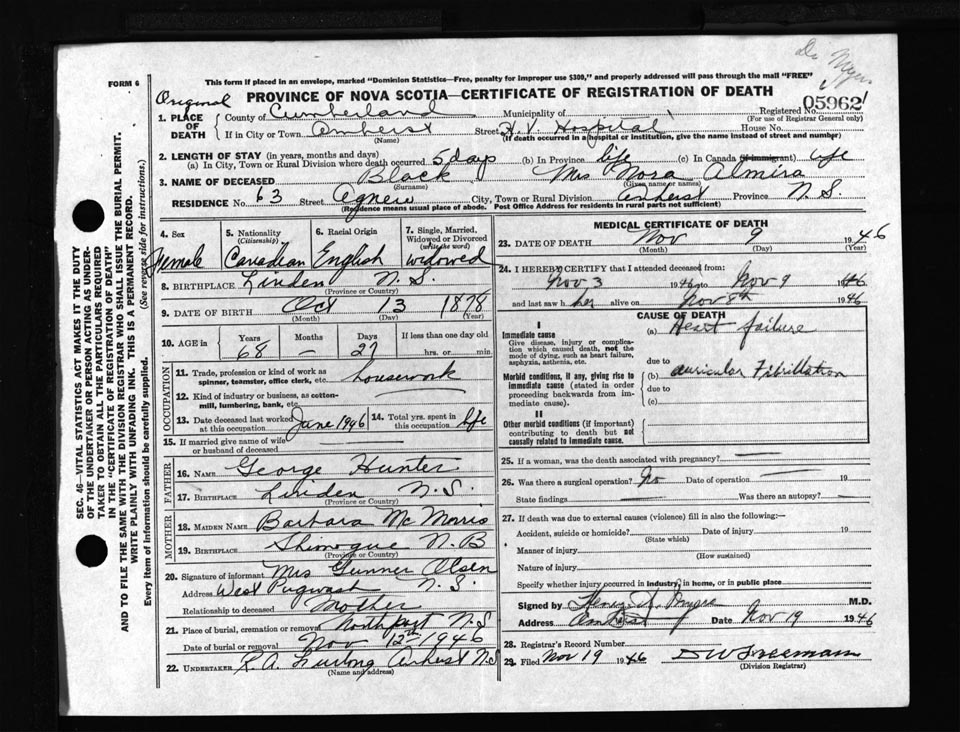 Dr Myers
FORM 6
This form if placed in an envelope, marked "Dominion Statistics—Free, penalty for improper use $300," and properly addressed will pass through the mail "FREE"
Original PROVINCE OF NOVA SCOTIA—CERTIFICATE OF REGISTRATION OF DEATH
05962
1. PLACE OF DEATH County of Cumberland Municipality of Registered No.
(For use of Registrar General only)
If in City or Town Amherst Street H. V. Hospital House No.
(Name) (If death occurred in a hospital or institution, give the name instead of street and number)
2. LENGTH OF STAY (in years, months and days)
(a) In City, Town or Rural Division where death occurred 5 days (b) In Province life (c) In Canada (if immigrant) life
3. NAME OF DECEASED Black Mrs Nora Almira
(Surname) (Given name or names)
RESIDENCE No. 63 Street Agnew City, Town or Rural Division Amherst Province N.S.
(Residence means usual place of abode. Post Office Address for residents in rural parts not sufficient)
4. Sex Female
5. Nationality (Citizenship) Canadian
6. Racial Origin English
7. Single, Married, Widowed or Divorced (write the word) Widowed
8. BIRTHPLACE Linden N.S.
(Province or Country)
9. DATE OF BIRTH Oct 13 1878
(Month) (Day) (Year)
10. AGE in Years Months Days If less than one day old
68 — 27 hrs. or min
OCCUPATION
11. Trade, profession or kind of work as spinner, teamster, office clerk, etc. housework
12. Kind of industry or business, as cotton-mill, lumbering, bank, etc. —
13. Date deceased last worked at this occupation June 1946
14. Total yrs. spent in this occupation life
15. If married give name of wife or husband of deceased
FATHER
16. NAME George Hunter
17. BIRTHPLACE Linden N.S.
(Province or Country)
MOTHER
18. MAIDEN NAME Barbara McMorris
19. BIRTHPLACE Shimogue N.B
(Province or Country)
20. Signature of informant Mrs Gunner Olsen
Address West Pugwash N.S.
Relationship to deceased Mother
21. Place of burial, cremation or removal Northport N.S
Date of burial or removal Nov 12th 1946
22. UNDERTAKER R.A. Furlong Amherst N.S
(Name and address)
MEDICAL CERTIFICATE OF DEATH
23. DATE OF DEATH Nov 9 1946
(Month) (Day) (Year)
24. I HEREBY CERTIFY that I attended deceased from:
Nov 3 1946 to Nov 9 1946
and last saw her alive on Nov 8th 1946
CAUSE OF DEATH
I
Immediate cause (a) Heart failure
Give disease, injury or complication which caused death, not the mode of dying, such as heart failure, asphyxia, asthenia, etc.
due to
Morbid conditions, if any, giving rise to immediate cause (stated in order proceeding backwards from immediate cause).
(b) auricular Fibrillation
due to
(c)
II
Other morbid conditions (if important) contributing to death but not causally related to immediate cause.
25. If a woman, was the death associated with pregnancy? —
26. Was there a surgical operation? No Date of operation — 19
State findings — Was there an autopsy? —
27. If death was due to external causes (violence) fill in also the following:—
Accident, suicide or homicide? Date of injury 19
(State which)
Manner of injury
(How sustained)
Nature of injury
Specify whether injury occurred in industry, in home, or in public place
Signed by M.D.
Address Amherst Date Nov 19 1946
28. Registrar's Record Number
29. Filed Nov 19 1946 D W Freeman
(Division Registrar)
SEC. 46—VITAL STATISTICS ACT MAKES IT THE DUTY
OF THE UNDERTAKER OR PERSON ACTING AS UNDERTAKER TO OBTAIN ALL THE PARTICULARS REQUIRED
IN THE "CERTIFICATE OF REGISTRATION OF DEATH"
AND TO FILE THE SAME WITH THE DIVISION REGISTRAR WHO SHALL ISSUE THE BURIAL PERMIT.
WRITE PLAINLY WITH UNFADING INK. THIS IS A PERMANENT RECORD.
Every item of information should be carefully supplied. (See reverse side for instructions.)